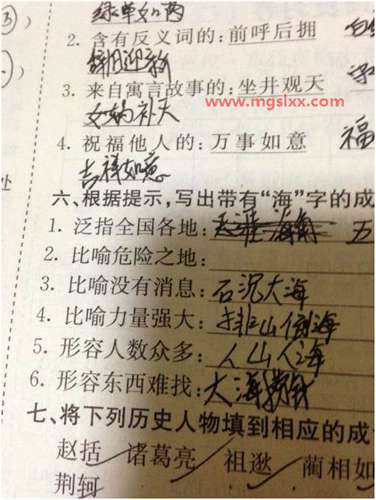 2. 含有反义词的:前呼后拥
辞旧迎新
3. 来自寓言故事的:坐井观天
www.mgslxx.com
女娲补天
4. 祝福他人的:万事如意 福
吉祥如意
六、根据提示,写出带有“海”字的成
1. 泛指全国各地: 天涯海角 五
2. 比喻危险之地:
3. 比喻没有消息: 石沉大海
4. 比喻力量强大: 排山倒海
5. 形容人数众多: 人山人海
6. 形容东西难找: 大海捞针
七、将下列历史人物填到相应的成
赵括 诸葛亮 祖逖 蔺相如
荆轲